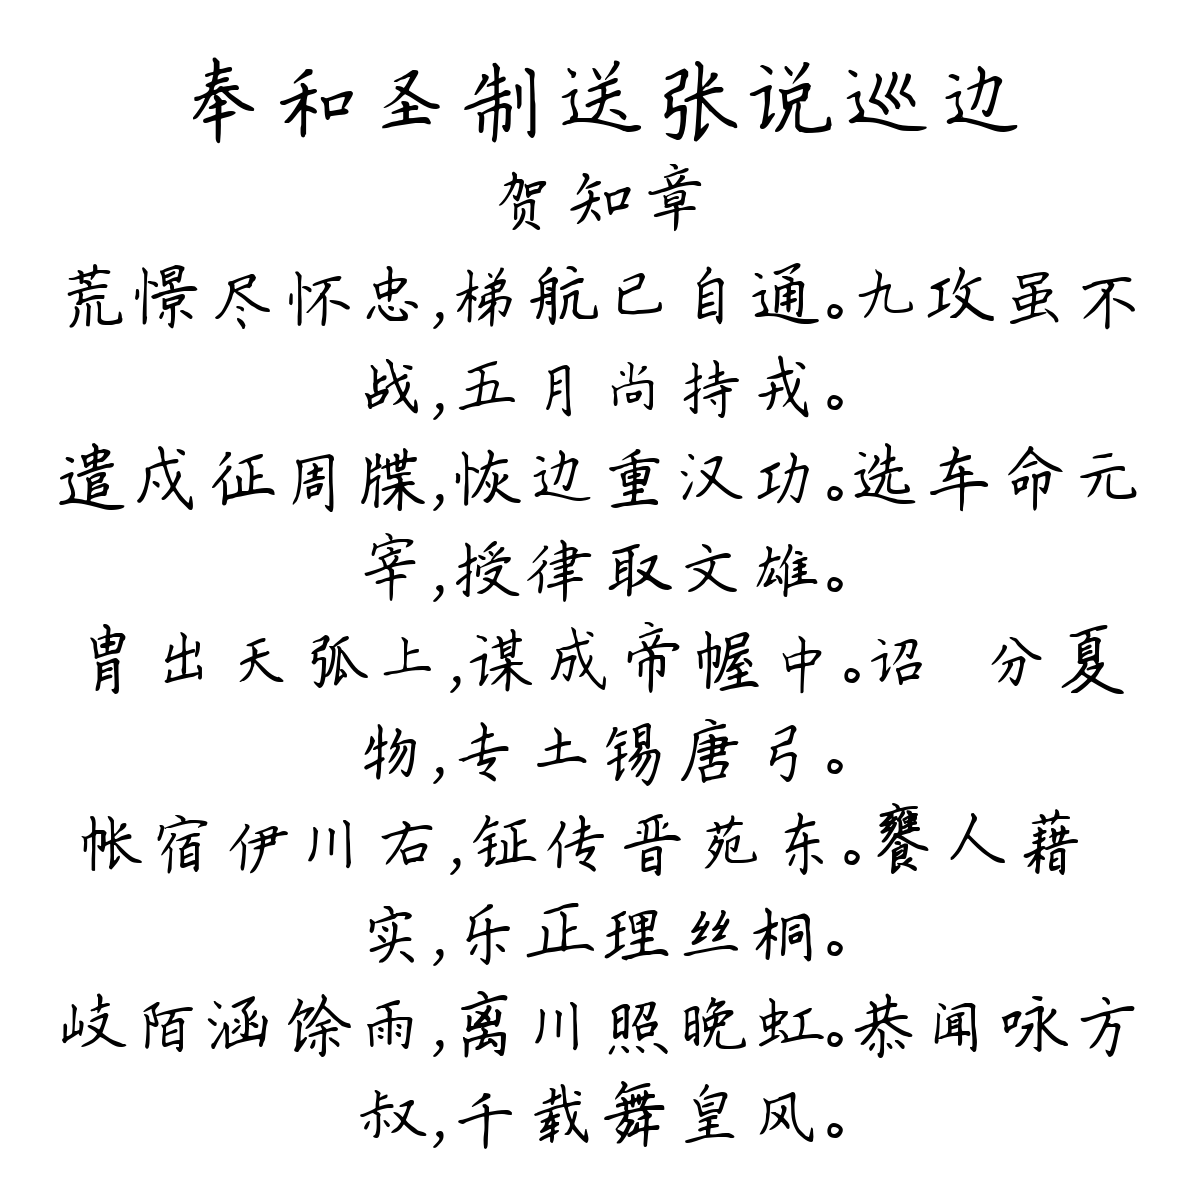 奉和圣制送张说巡边
贺知章
荒憬尽怀忠,梯航已自通。九攻虽不
战,五月尚持戎。
遣戍征周牒,恢边重汉功。选车命元
宰,授律取文雄。
胄出天弧上,谋成帝幄中。诏 分夏
物,专土锡唐弓。
帐宿伊川右,钲传晋苑东。饔人藉
实,乐正理丝桐。
岐陌涵馀雨,离川照晚虹。恭闻咏方
叔,千载舞皇风。